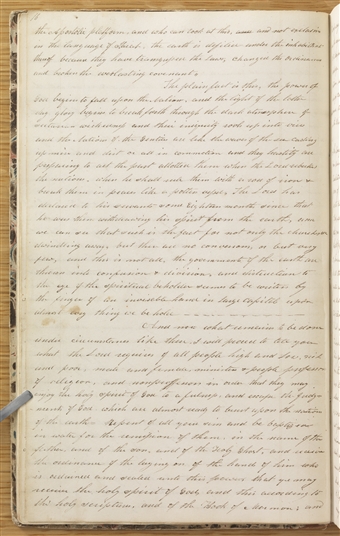 the Apostolic platform, and who can look at this, and not exclaim
in the language of Isaiah, the earth is defiled under the inhabitants
thereof because they have transgressed the laws, changed the ordinances
and broken the everlasting covenant.
The plain fact is this, the power of
God begins to fall upon the Nations, and the light of the latter
day glory begins to break forth through the dark atmosphere of
sectarian wickedness and their iniquity rolls up into view
and the Nations of the Gentiles are like the waves of the sea casting
up mire and dirt or all in commotion and they hastily are
preparing to act the part allotted them when the Lord rebukes
the nations, when he shall rule them with a rod of iron &
break them in pieces like a potters vessel. The Lord has
declared to his servants some eighteen months since that
he was then withdrawing his spirit from the earth, and
we can see that such is the fact for not only the churches are
dwindling away, but there are no conversions, or but very
few, and this is not all, the governments of the earth are
thrown into confusion & division, and distruction to
the eye of the spiritual beholder seems to be writen by
the finger of an invisable hand in large capitals upon
almost every thing we behold
And now what remains to be done
under circumstances like these, I will proceed to tell you
what the Lord requires of all people high and low, rich
and poor, male and female, ministers & people professors
of religeon, and nonproffessors in order that they may
enjoy the holy spirit of God to a fulness, and escape the judge-
ments of God, which are almost ready to burst upon the nations
of the earth. Repent of all your sins and be baptized
in water for the remission of them, in the name of the
father, and of the son, and of the Holy Ghost, and receive
the ordinance of the laying on of the hands of him who
is ordained and sealed unto this power, that ye may
receive the holy spirit of God, and this according to
the holy scriptures, and of the Book of Mormon; and